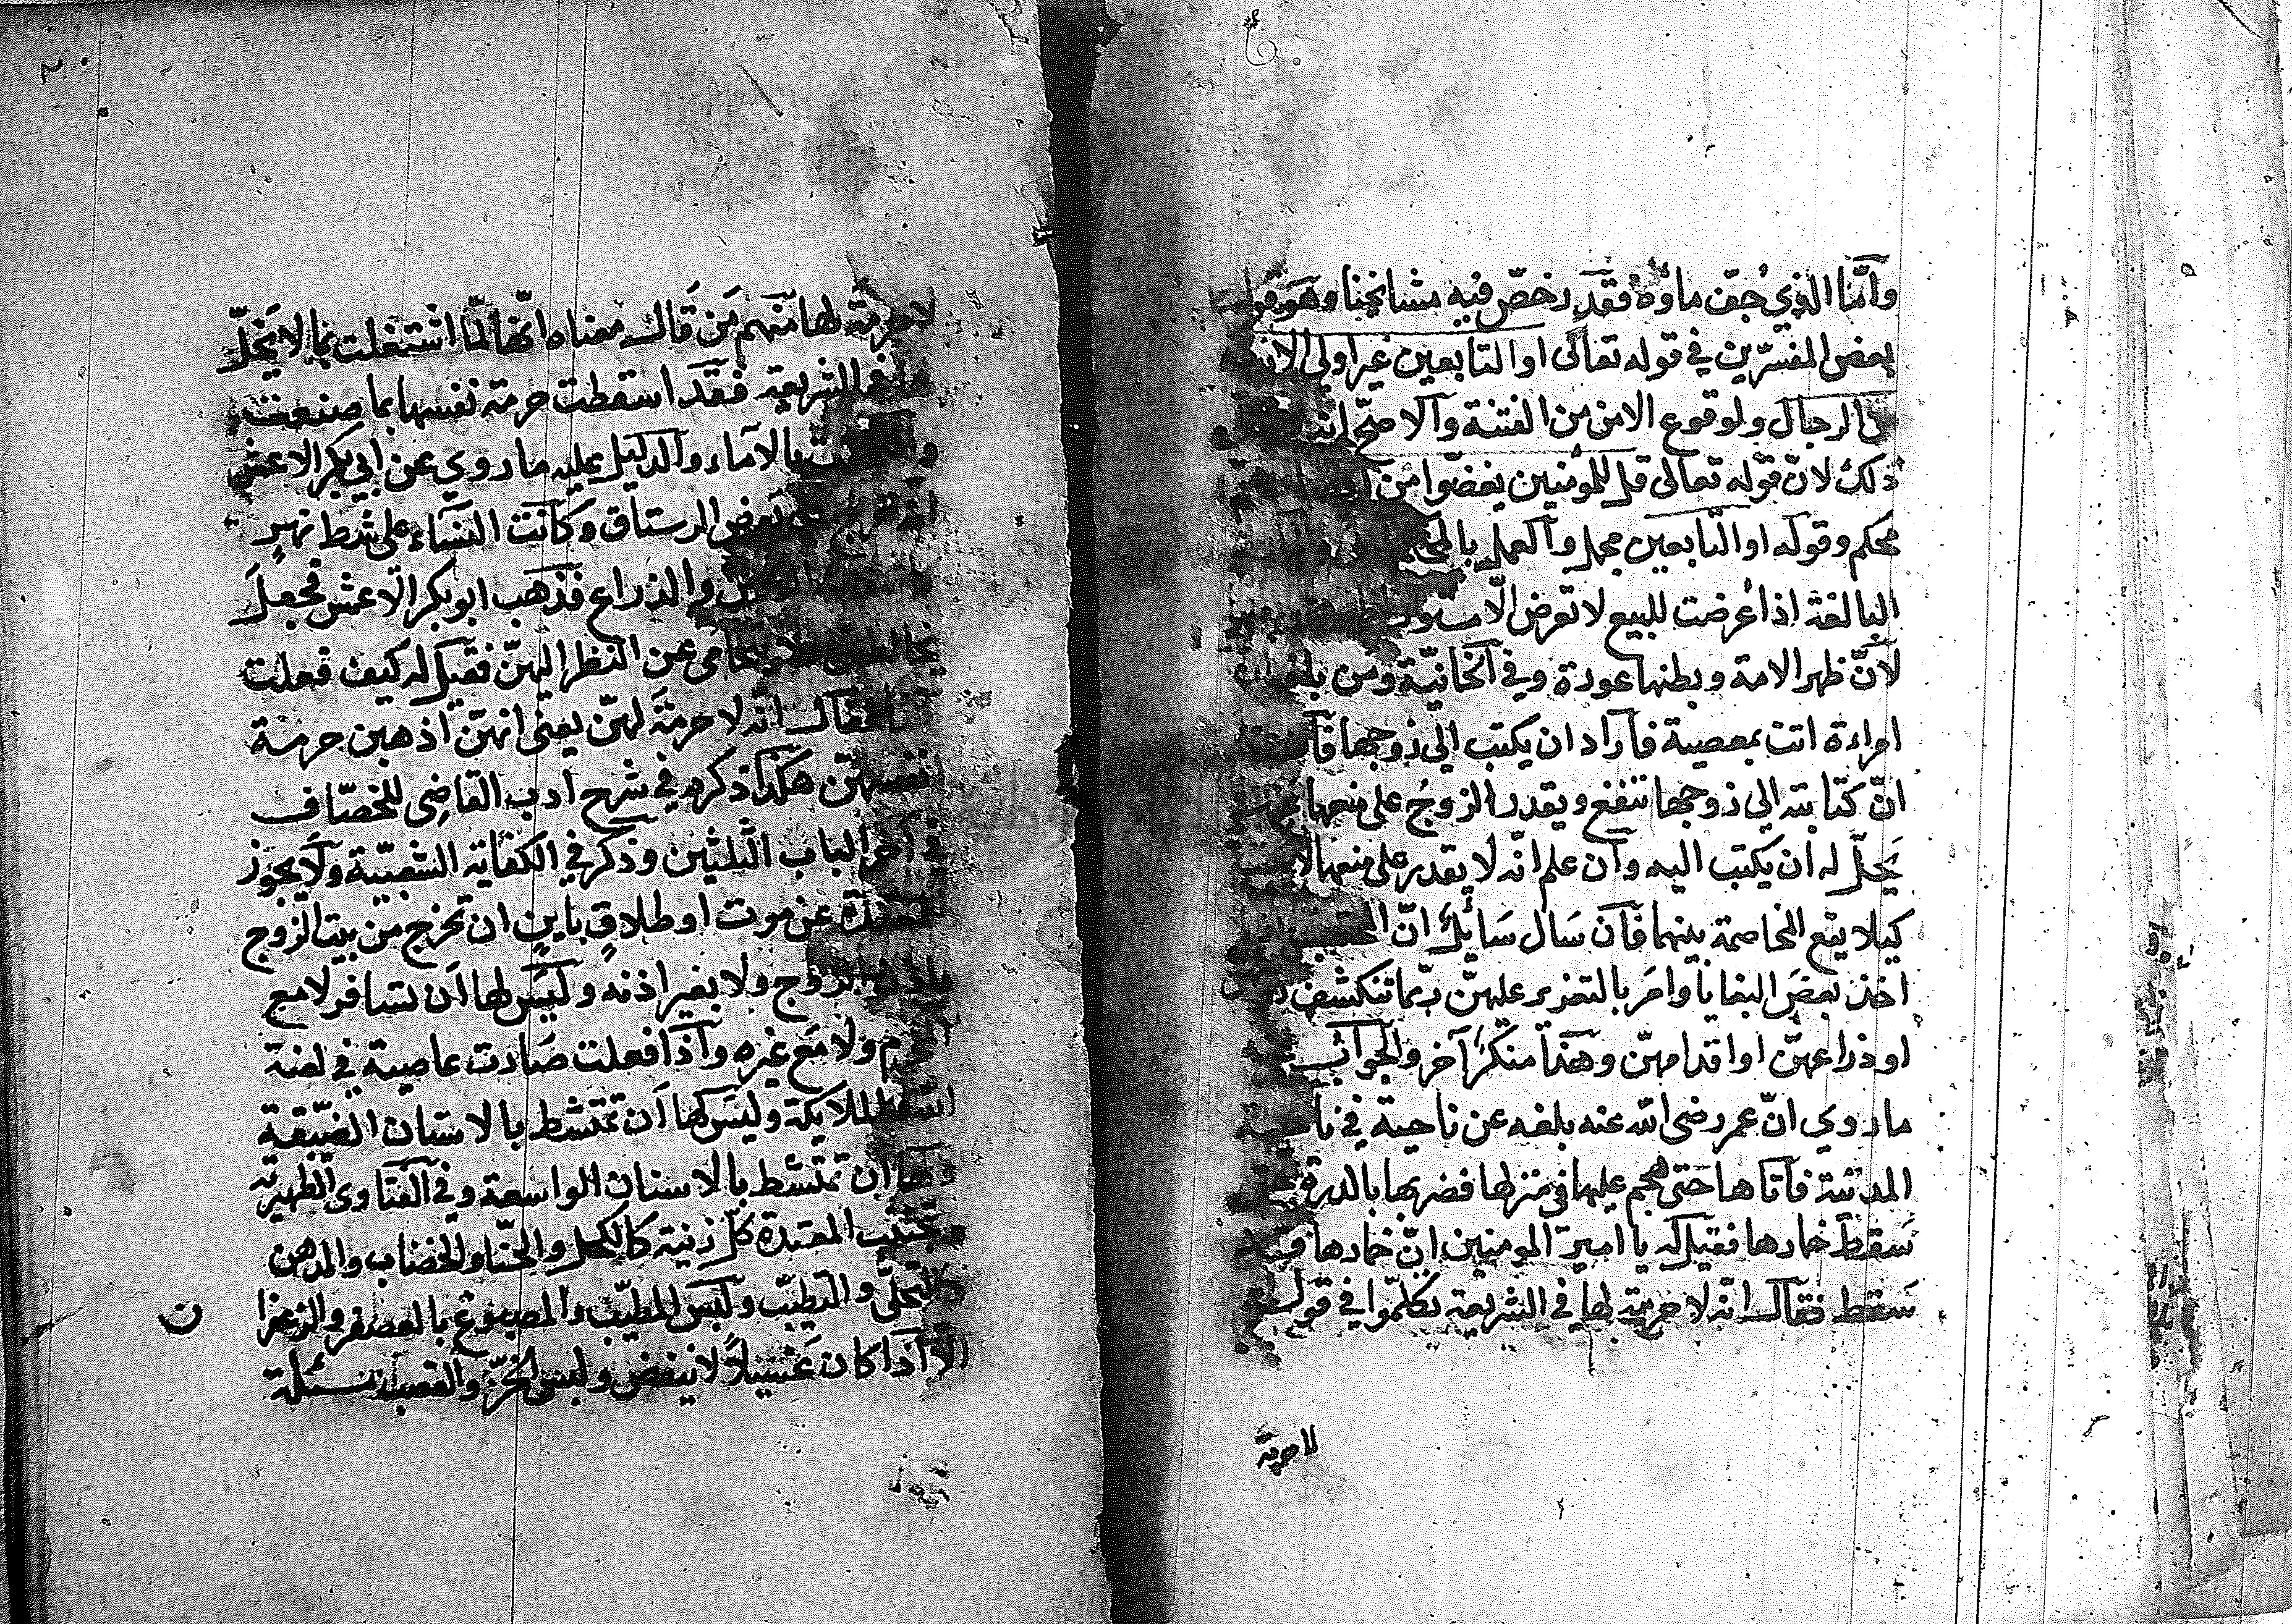 وأمّا الذي جفّ ماؤه فقد رخّص فيه مشايخنا وهو قول
بعض المفسّرين في قوله تعالى او التابعين غير اولى الار
من الرجال ولوقوع الامن من الفتنة والاصحّ انه
ذلك لانّ قوله تعالى قل للمؤمنين يغضّوا من
محكم وقوله او التابعين مجمل والعمل بالمح
البالغة اذا عُرضت للبيع لا تعرض الّا
لانّ ظهر الامة وبطنها عورة وفي الخانيّة ومن
امراءة اتت بمعصية فاراد ان يكتب الى زوجها
انّ كتابته الى زوجها تنفع ويقدر الزوجُ على منعها
يَحلّ له ان يكتب اليه وان علم انّه لا يقدر على منعها لا
كيلا يقع المخاصمة بينهما فان سَال سَائلٌ انّ المحتسب
اخذ بعضَ البغايا وامَر بالتعزير عليهنّ ربّما تنكشف
او ذراعهنّ او اقدامهنّ وهذا منكرٌ آخر والجوابُ
ما روي انّ عمر رضى الله عنه بلغه عن ناحية في ناحية
المدينة فاتاها حتى هجم عليها في منزلها فضربها بالدرة
سَقط خمارها فقيل له يا امير المومنين انّ خمارها قد
سَقط فقال انه لا حرمة لها في الشريعة تكلّموا في قوله
لا حرمة
لا حرمة لها منهم مَن قَال معناه انّها لمّا اشتغلت بما لا يَحلّ
في الشريعة فقد اسقطت حرمة نفسها بما صنعت
والتحقت بالاماء والدليل عليه ما روي عن ابي بكر الاعمش
بعض الرستاق وكانت النسَاء على شط نهرٍ
والذراع فذهب ابو بكر الاعمش فجعل
يتحامى عن النظر اليهنّ فقيل له كيف فعلت
فقال انّه لا حرمة لهنّ يعنى انهنّ اذهبن حرمة
انفسهنّ هكذا ذكره في شرح ادب القاضِى للخصّاف
في آخر الباب الثلثين وذكر في الكفاية الشعبيّة ولا يجوز
للمعتدّة عن موت او طلاقٍ باينٍ ان تخرج من بيت الزوج
باذن الزوج ولا بغير اذنه وليس لها ان تسافر لا مع
محرم ولا مَع غيره واذا فعلت صَارت عاصية في لعنة
الله والملايكة وليسَ لها اَن تمتشط بالاسنان الضيّقة
ولها ان تمتشط بالاسنان الواسعة وفي الفتاوى الظهيرية
وتجتنب المعتدة كلّ زينة كالكحل والحنّا والخضاب والدهن
والتحلّى والتطيّب ولبس المطيّب والمصبوغ بالعصفر والزعفرا
ن
الّا اذا كان غسيلاً لا ينفض ولبس الخزّ والقصب مسئلة